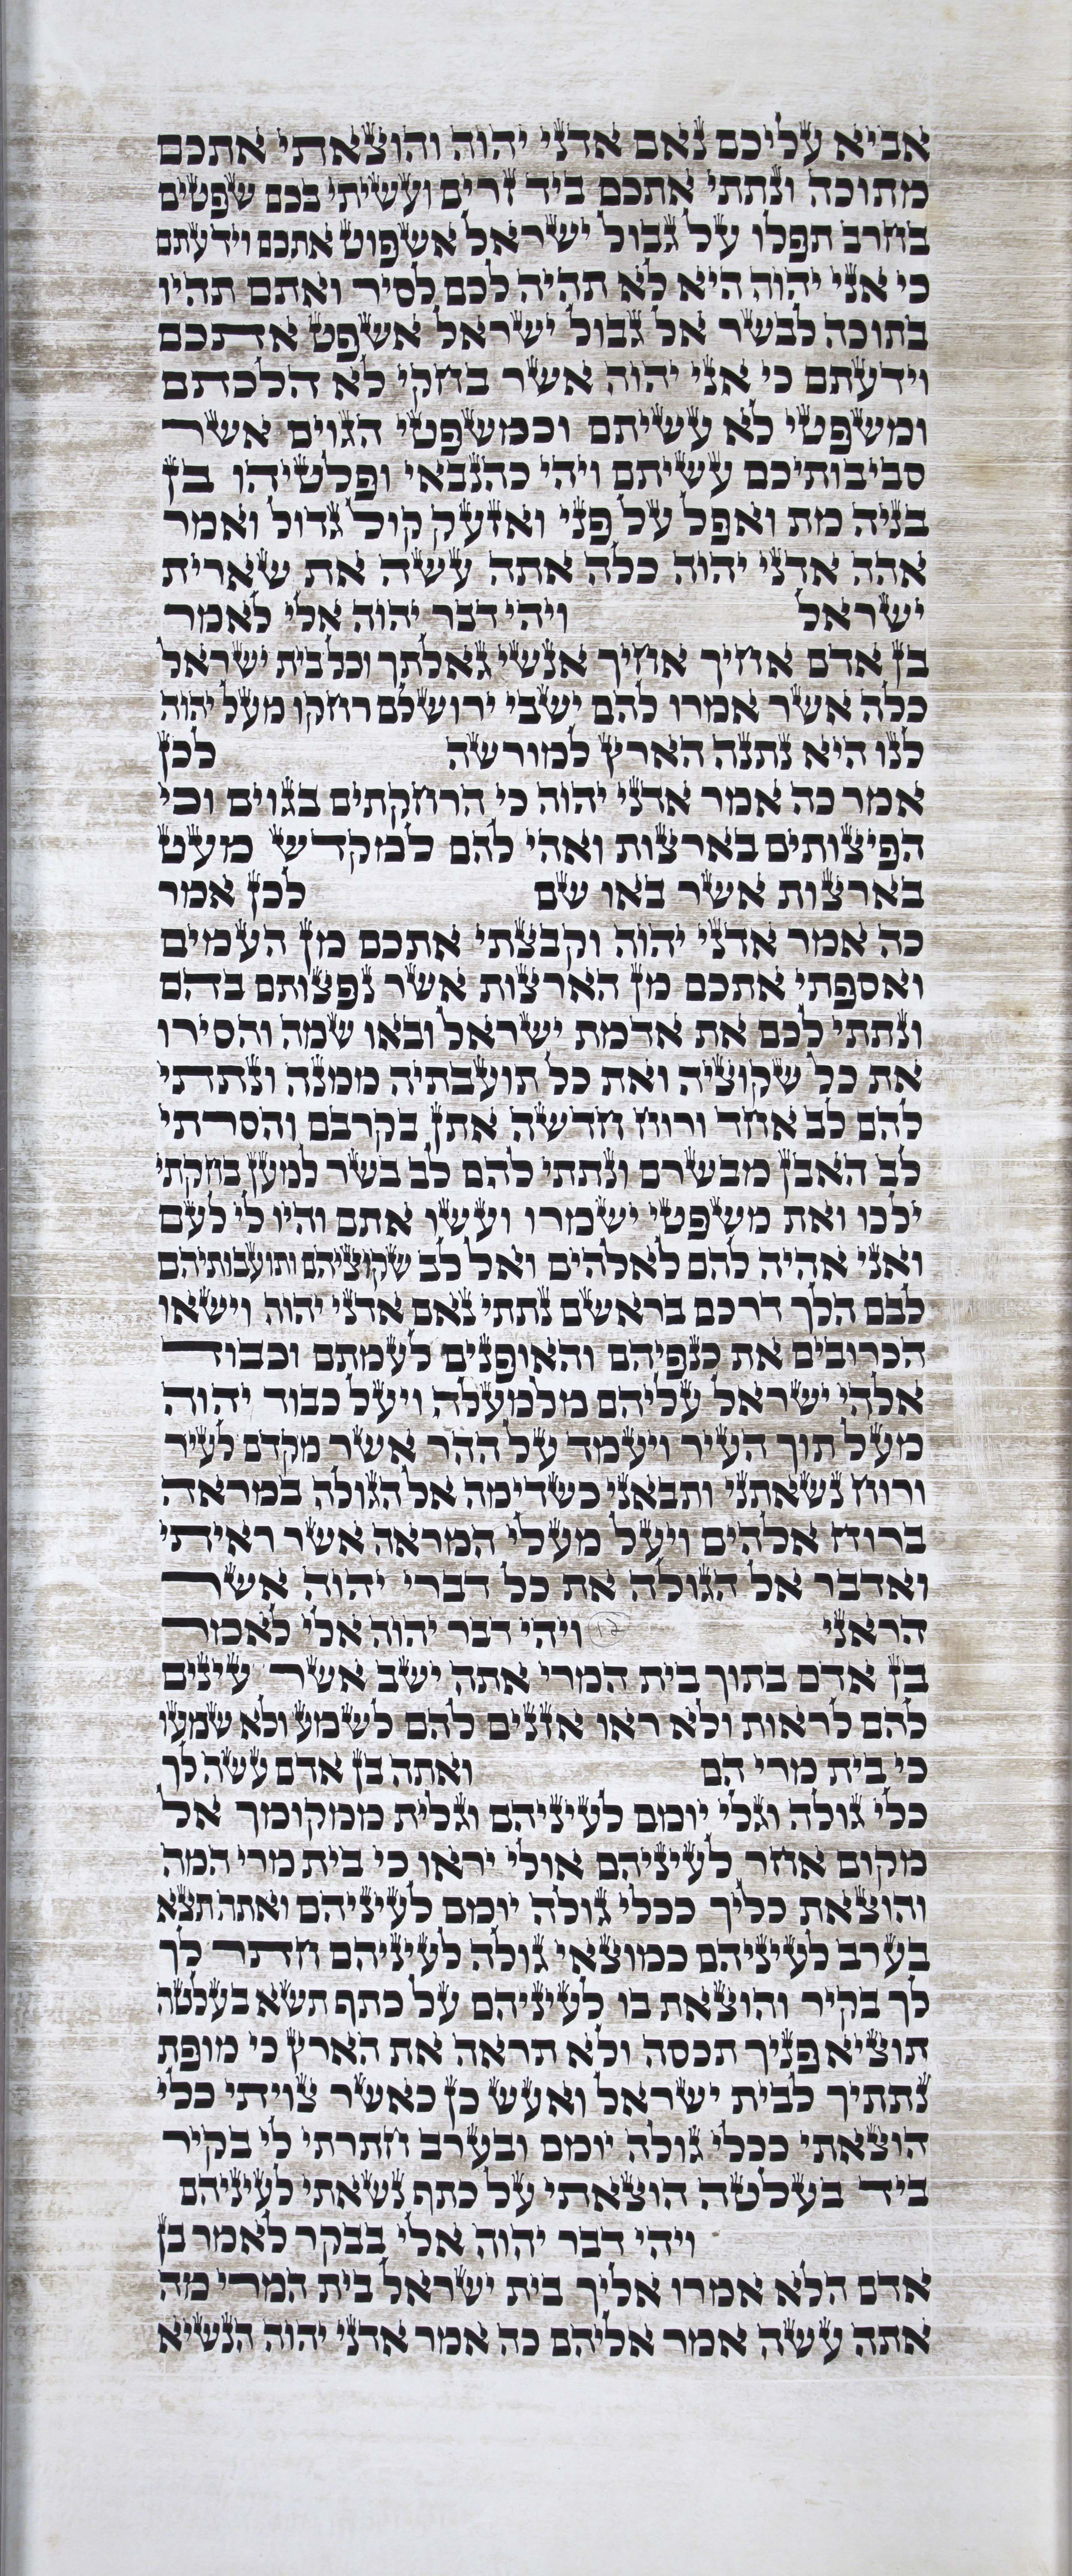 אביא עליכם נאם אדני יהוה והוצאתי אתכם
מתוכה ונתתי אתכם ביד זרים ועשיתי בכם שפטים
בחרב תפלו על גבול ישראל אשפוט אתכם וידעתם
כי אני יהוה היא לא תהיה לכם לסיר ואתם תהיו
בתוכה לבשר אל גבול ישראל אשפט אתכם
וידעתם כי אני יהוה אשר בחקי לא הלכתם
ומשפטי לא עשיתם וכמשפטי הגוים אשר
סביבותיכם עשיתם ויהי כהנבאי ופלטיהו בן
בניה מת ואפל על פני ואזעק קול גדול ואמר
אהה אדני יהוה כלה אתה עשה את שארית
ישראל ויהי דבר יהוה אלי לאמר
בן אדם אחיך אחיך אנשי גאלתך וכל בית ישראל
כלה אשר אמרו להם ישבי ירושלם רחקו מעל יהוה
לנו היא נתנה הארץ למורשה לכן
אמר כה אמר אדני יהוה כי הרחקתים בגוים וכי
הפיצותים בארצות ואהי להם למקדש מעט
בארצות אשר באו שם לכן אמר
כה אמר אדני יהוה וקבצתי אתכם מן העמים
ואספתי אתכם מן הארצות אשר נפצותם בהם
ונתתי לכם את אדמת ישראל ובאו שמה והסירו
את כל שקוציה ואת כל תועבתיה ממנה ונתתי
להם לב אחד ורוח חדשה אתן בקרבם והסרתי
לב האבן מבשרם ונתתי להם לב בשר למען בחקתי
ילכו ואת משפטי ישמרו ועשו אתם והיו לי לעם
ואני אהיה להם לאלהים ואל לב שקוציהם ותועבותיהם
לבם הלך דרכם בראשם נתתי נאם אדני יהוה וישאו
הכרובים את כנפיהם והאופנים לעמתם וכבוד
אלהי ישראל עליהם מלמעלה ויעל כבוד יהוה
מעל תוך העיר ויעמד על ההר אשר מקדם לעיר
ורוח נשאתני ותבאני כשדימה אל הגולה במראה
ברוח אלהים ויעל מעלי המראה אשר ראיתי
ואדבר אל הגולה את כל דברי יהוה אשר
הראני ויהי דבר יהוה אלי לאמר
בן אדם בתוך בית המרי אתה ישב אשר עינים
להם לראות ולא ראו אזנים להם לשמע ולא שמעו
כי בית מרי הם ואתה בן אדם עשה לך
כלי גולה וגלי יומם לעיניהם וגלית ממקומך אל
מקום אחר לעיניהם אולי יראו כי בית מרי המה
והוצאת כליך ככלי גולה יומם לעיניהם ואתה תצא
בערב לעיניהם כמוצאי גולה לעיניהם חתר לך
לך בקיר והוצאת בו לעיניהם על כתף תשא בעלטה
תוציא פניך תכסה ולא תראה את הארץ כי מופת
נתתיך לבית ישראל ואעש כן כאשר צויתי כלי
הוצאתי ככלי גולה יומם ובערב חתרתי לי בקיר
ביד בעלטה הוצאתי על כתף נשאתי לעיניהם
ויהי דבר יהוה אלי בבקר לאמר בן
אדם הלא אמרו אליך בית ישראל בית המרי מה
אתה עשה אמר אליהם כה אמר אדני יהוה הנשיא